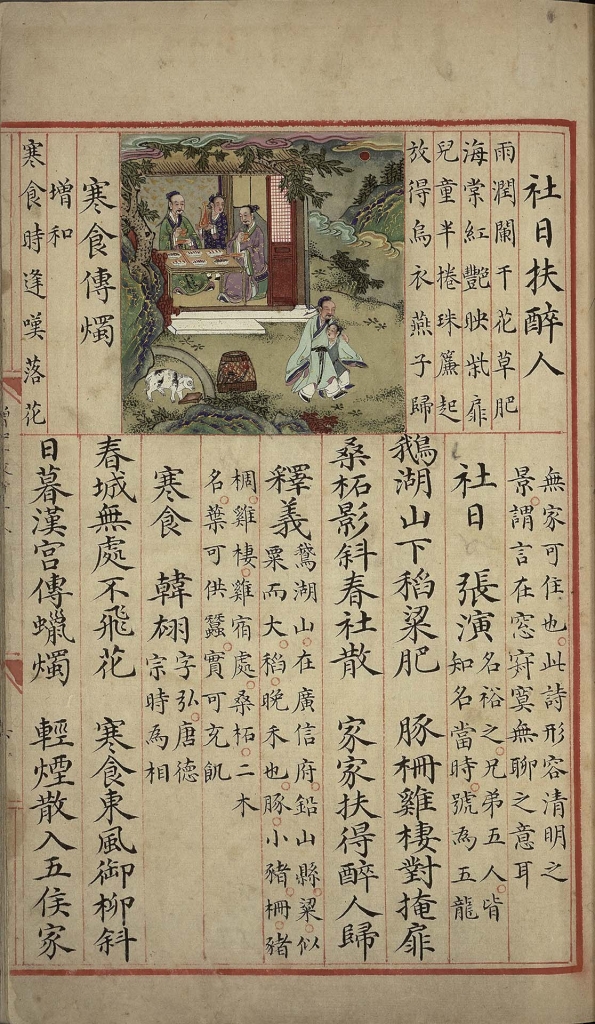 社日扶醉人
雨潤闌干花草肥
海棠紅艷映柴扉
兒童半捲珠簾起
放得烏衣燕子歸
寒食傳燭
增和
寒食時逢嘆落花
無家可住也此詩形容清明之
景謂言在窓寂寞無聊之意耳
社日 張演 名裕之兄弟五人皆
知名當時號為五龍
鵝湖山下稻粱肥 豚柵雞棲對掩扉
桑柘影斜春社散 家家扶得醉人歸
釋義 鵞湖山在廣信府鉛山縣粱似
粟而大稻晚禾也豚小豬柵豬
椆雞棲雞宿處桑柘二木
名葉可供蠶實可充飢
寒食 韓栩 字弘唐德
宗時為相
春城無處不飛花 寒食東風御柳斜
日暮漢宮傳蠟燭 輕煙散入五侯家